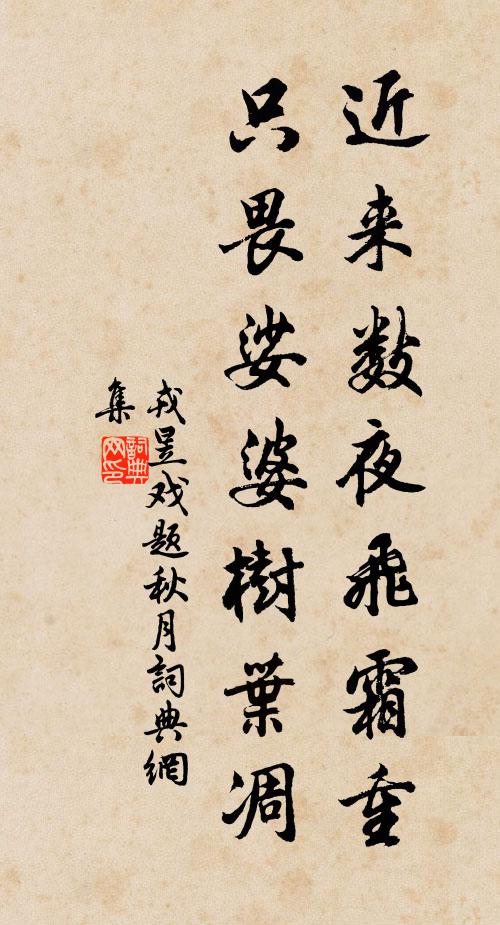 近来数夜飛霜重
只畏娑婆樹葉凋
戎昱戏题秋月詞典網
集
詞典
网印